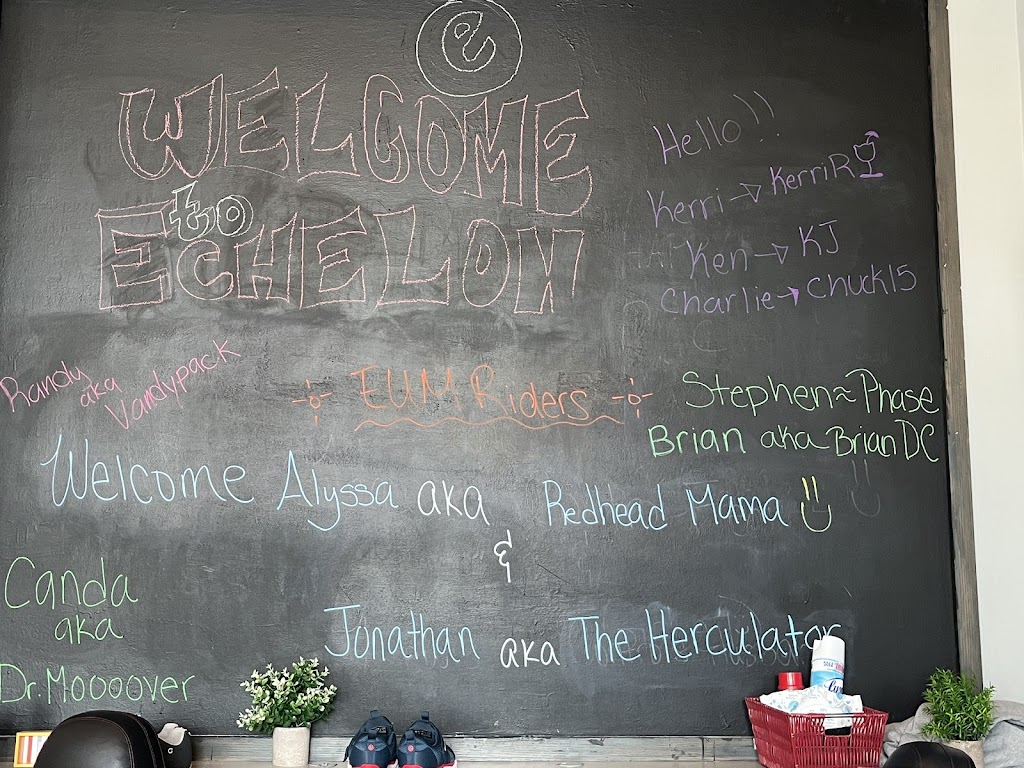 e
WELCOME
to
ECHELON
Hello!!
Kerri → KerriR
Ken → KJ
Charlie → Chuck15
Randy
aka
Vandypack
EUM Riders
Stephen ≈ Phase
Brian aka BrianDC
Welcome Alyssa aka Redhead Mama
&
Jonathan aka The Herculator
Canda
aka
Dr. Moooover